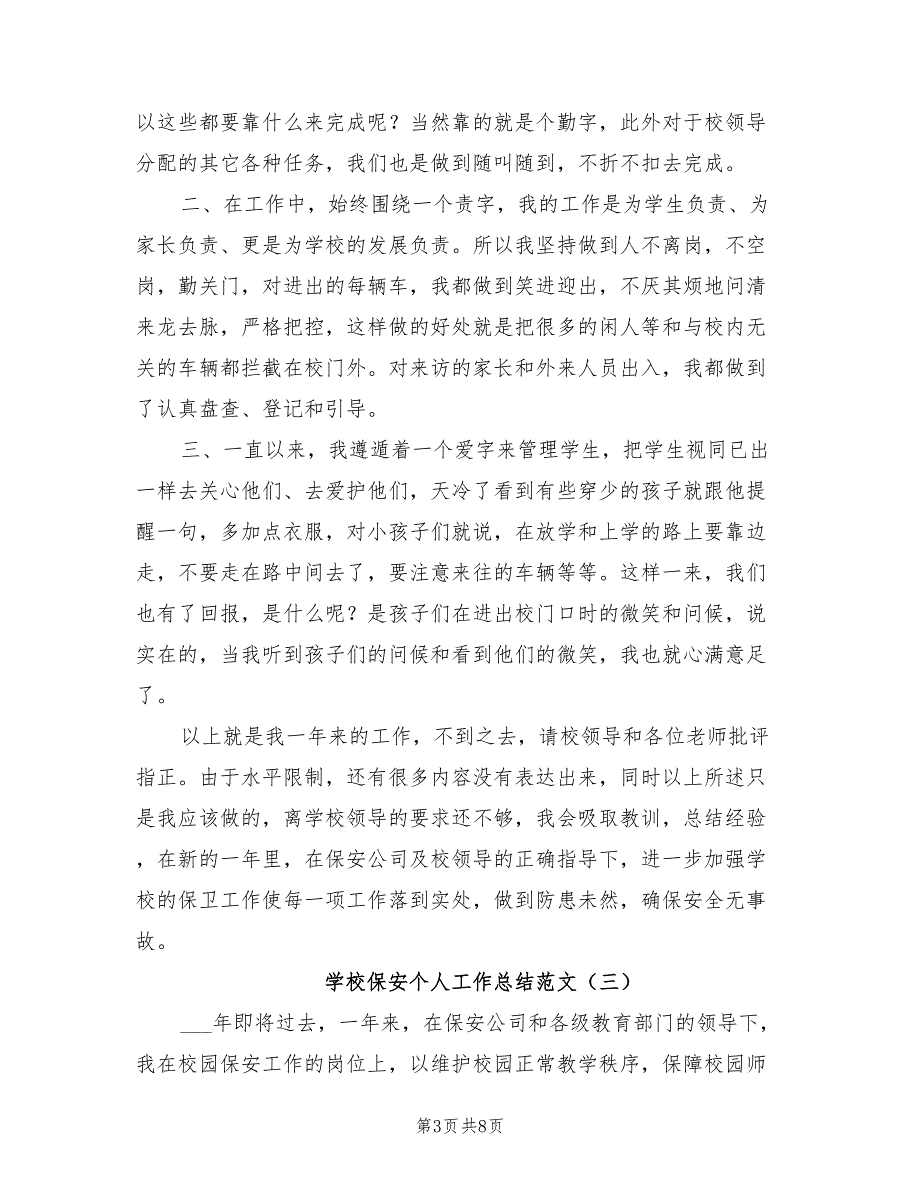 以这些都要靠什么来完成呢？当然靠的就是个勤字，此外对于校领导
分配的其它各种任务，我们也是做到随叫随到，不折不扣去完成。
二、在工作中，始终围绕一个责字，我的工作是为学生负责、为
家长负责、更是为学校的发展负责。所以我坚持做到人不离岗，不空
岗，勤关门，对进出的每辆车，我都做到笑进迎出，不厌其烦地问清
来龙去脉，严格把控，这样做的好处就是把很多的闲人等和与校内无
关的车辆都拦截在校门外。对来访的家长和外来人员出入，我都做到
了认真盘查、登记和引导。
三、一直以来，我遵遁着一个爱字来管理学生，把学生视同已出
一样去关心他们、去爱护他们，天冷了看到有些穿少的孩子就跟他提
醒一句，多加点衣服，对小孩子们就说，在放学和上学的路上要靠边
走，不要走在路中间去了，要注意来往的车辆等等。这样一来，我们
也有了回报，是什么呢？是孩子们在进出校门口时的微笑和问候，说
实在的，当我听到孩子们的问候和看到他们的微笑，我也就心满意足
了。
以上就是我一年来的工作，不到之去，请校领导和各位老师批评
指正。由于水平限制，还有很多内容没有表达出来，同时以上所述只
是我应该做的，离学校领导的要求还不够，我会吸取教训，总结经验
，在新的一年里，在保安公司及校领导的正确指导下，进一步加强学
校的保卫工作使每一项工作落到实处，做到防患未然，确保安全无事
故。
学校保安个人工作总结范文（三）
___年即将过去，一年来，在保安公司和各级教育部门的领导下，
我在校园保安工作的岗位上，以维护校园正常教学秩序，保障校园师
第3页 共8页